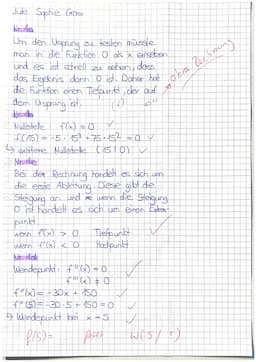 Um den Ursprung zu testen müsste
man in die Funktion 0 als x einsetzen
und es ist schnell zu sehen, dass
das Ergebnis dann 0 ist. Daher hat
die Funktion einen Tiefpunkt, der auf
dem Ursprung ist. (√)
ohne Rechnung
Nullstelle f(x) = 0 ✓
f(15) = -5 · 15³ + 75 · 15² = 0 ✓
↳ weitere Nullstelle (15|0) ✓
Bei der Rechnung handelt es sich um
die erste Ableitung. Diese gibt die
Steigung an und wenn die Steigung
0 ist handelt es sich um einen Extrem-
punkt.
wenn f''(x) > 0 Tiefpunkt
wenn f''(x) < 0 Hochpunkt
Wendepunkt: f''(x) = 0
f'''(x) ≠ 0
f''(x) = -30x + 150
f''(5) = -30 · 5 + 150 = 0
↳ Wendepunkt bei x = 5
f(5) = W(5/?)